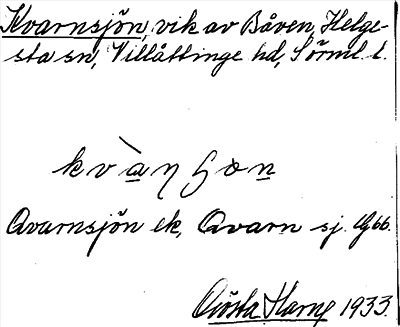 Kvarnsjön, vik av Båven, Helge-
sta sn, Villåttinge hd, Sörml. l.
kvàṇʃon
Qvarnsjön ek, Qvarn sj. Gg 66.
Gösta Harp 1933.